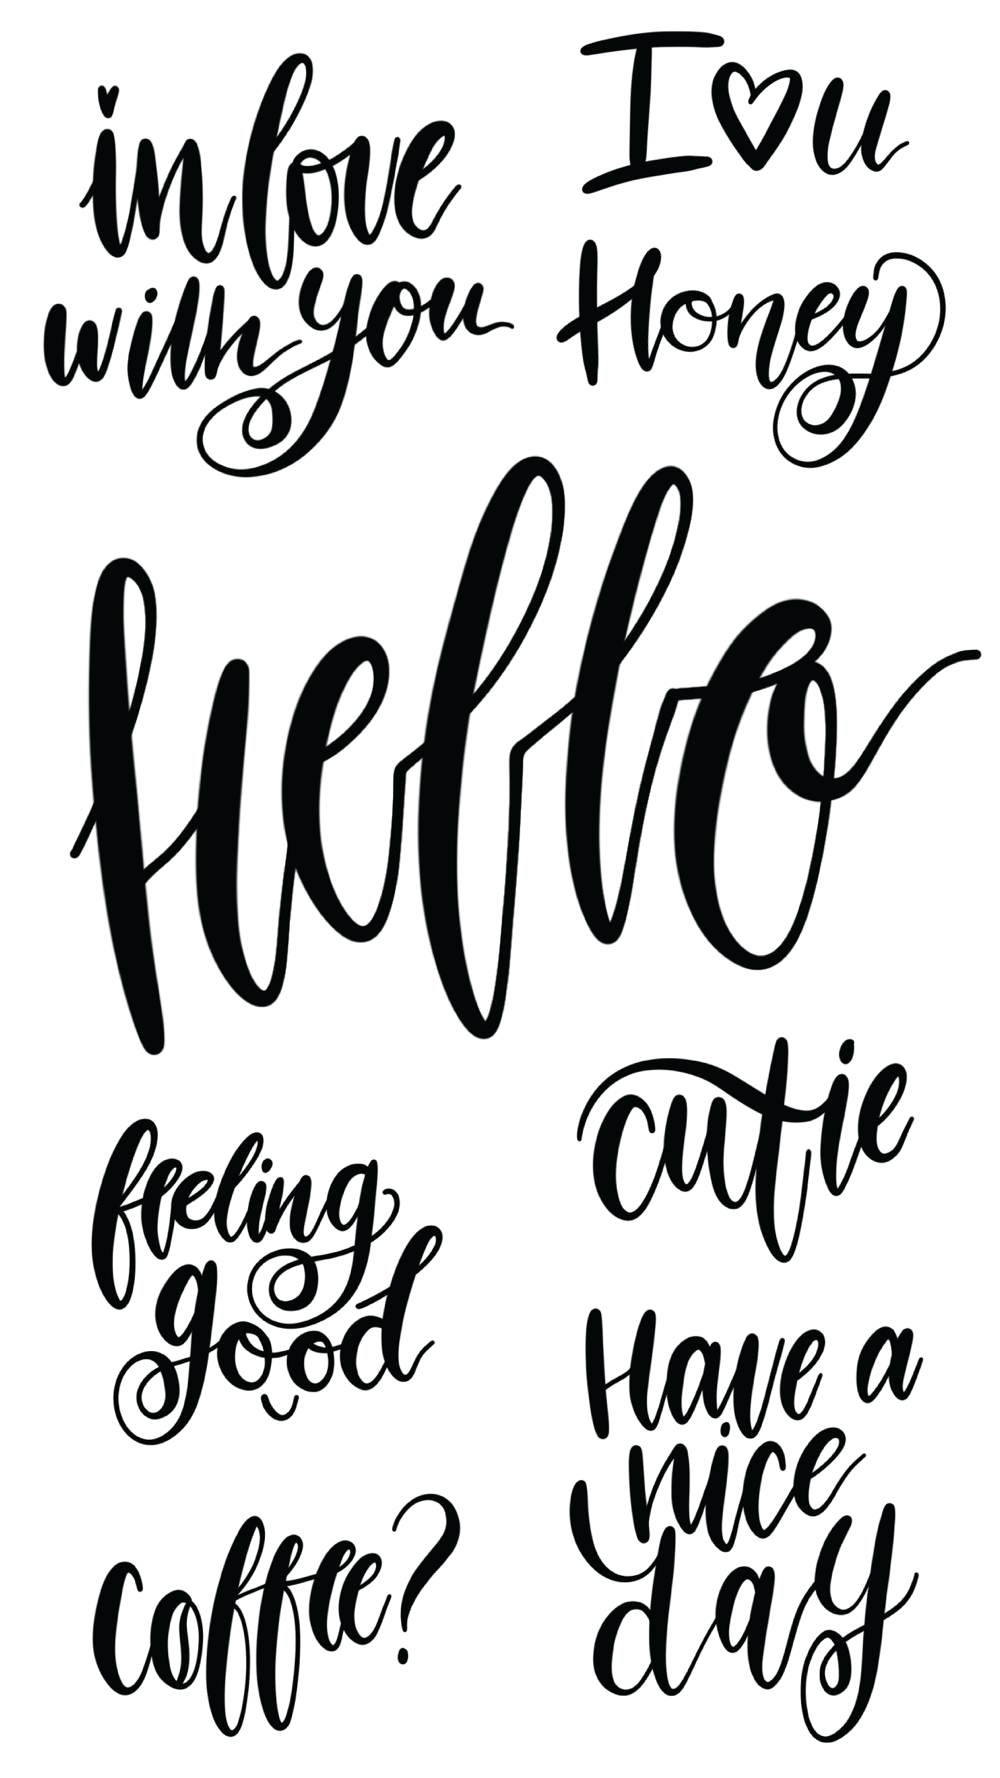 in love
with you
I♡u
Honey
hello
cutie
feeling
good
Have a
nice
day
coffee?